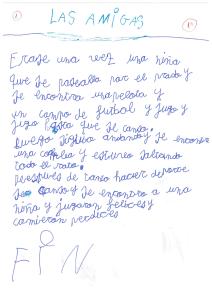 1 LAS AMIGAS 1º
Erase una vez una niña
que se paseaba por el prado y
se encontro una pelota y
un campo de futbol y jugo y
jugo hasta que se canso.
luego siguio andando y se encontro
una y estuvo saltando
todo el rato.
despues de tanto hacer deporte
se canso y se encontro a una
niña y jugaron felices y
comieron perdices
FIN